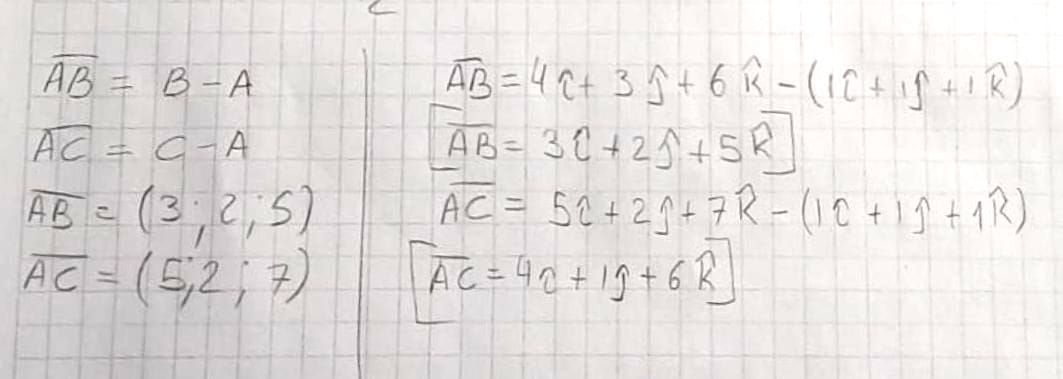 A̅B̅ = B - A
A̅C̅ = C - A
A̅B̅ = (3; 2; 5)
A̅C̅ = (5; 2; 7)
A̅B̅ = 4î + 3ĵ + 6k̂ - (1î + 1ĵ + 1k̂)
[A̅B̅ = 3î + 2ĵ + 5k̂]
A̅C̅ = 5î + 2ĵ + 7k̂ - (1î + 1ĵ + 1k̂)
[A̅C̅ = 4î + 1ĵ + 6k̂]